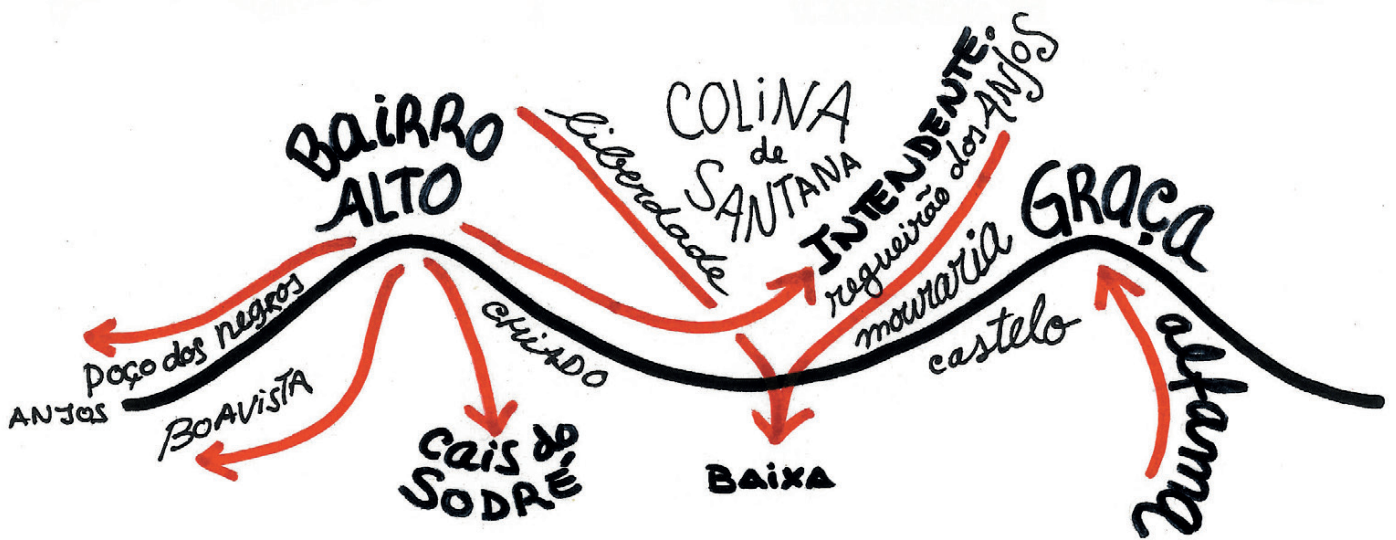 BAiRRO
ALTO
liberdade
COLiNA
de
SANTANA
INTENDENTE.
regueirão dos ANJOS
GRAÇA
mouraria
castelo
alfama
poço dos negros
ANJOS
BOAVISTA
CHIADO
Cais do
SODRÉ
BAiXA